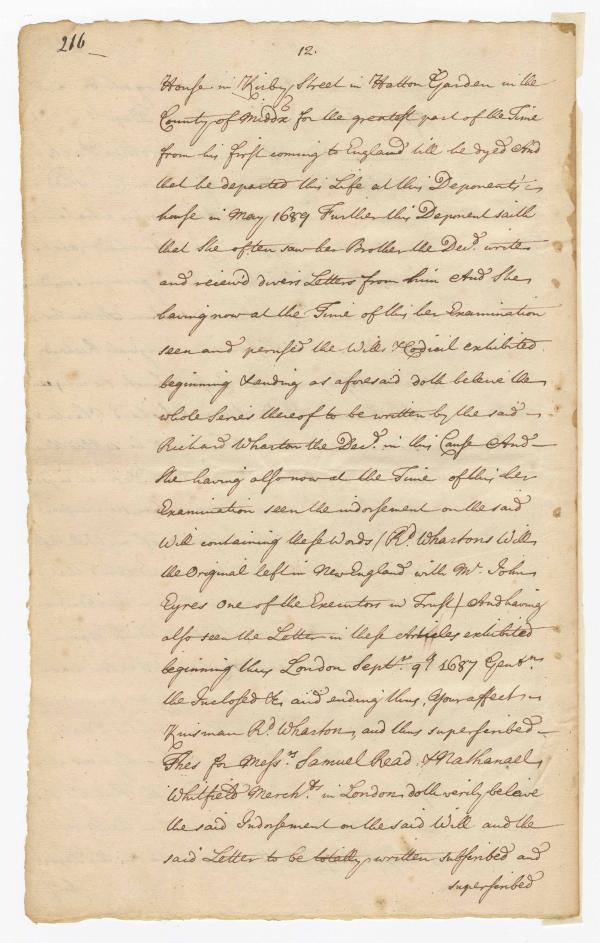 216
12.
House in Kirby Street in Hatton Garden in the
County of Middx for the greatest part of the Time
from his first coming to England till he dyed And
that he departed this Life at this Deponents
house in May 1689 Further this Deponent saith
that She often saw her Brother the Decd. write
and reciev'd divers Letters from him And She
having now at the Time of this her Examination
seen and perused the Wills & Codicil exhibited
beginning & ending as aforesaid doth beleive the
whole Series thereof to be written by the said
Richard Wharton the Decd. in this Cause And
She having also now at the Time of this her
Examination seen the indorsement on the said
Will containing these Words / Rd. Whartons Will
the Original left in New England with Mr. John
Eyres one of the Executors in Trust / And having
also seen the Letter in these Articles exhibited
beginning thus London Septr. 9th 1687 Gentmn.
the Inclosed &c and ending thus, Your affect
Kinsman Rd. Wharton, and thus superscribed
Thes for Messrs. Samuel Read & Nathanael
Whitfield Merchts. in London doth verily beleive
the said Indorsement on the said Will and the
said Letter to be totally written subscribed and
superscribed